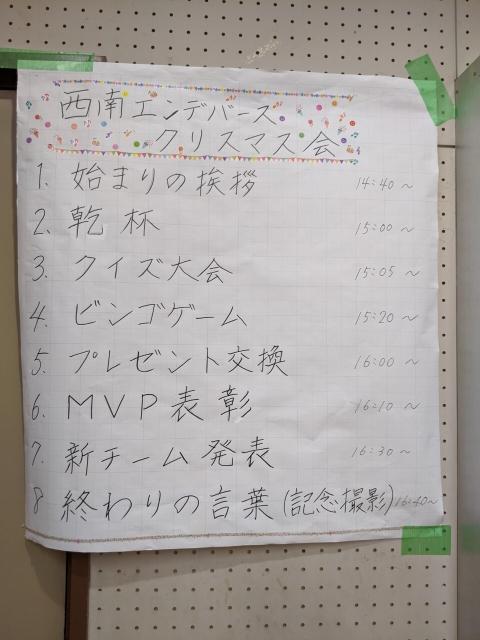 西南エンデバース
クリスマス会
1. 始まりの挨拶 14:40～
2. 乾杯 15:00～
3. クイズ大会 15:05～
4. ビンゴゲーム 15:20～
5. プレゼント交換 16:00～
6. MVP表彰 16:10～
7. 新チーム発表 16:30～
8 終わりの言葉(記念撮影) 16:40～